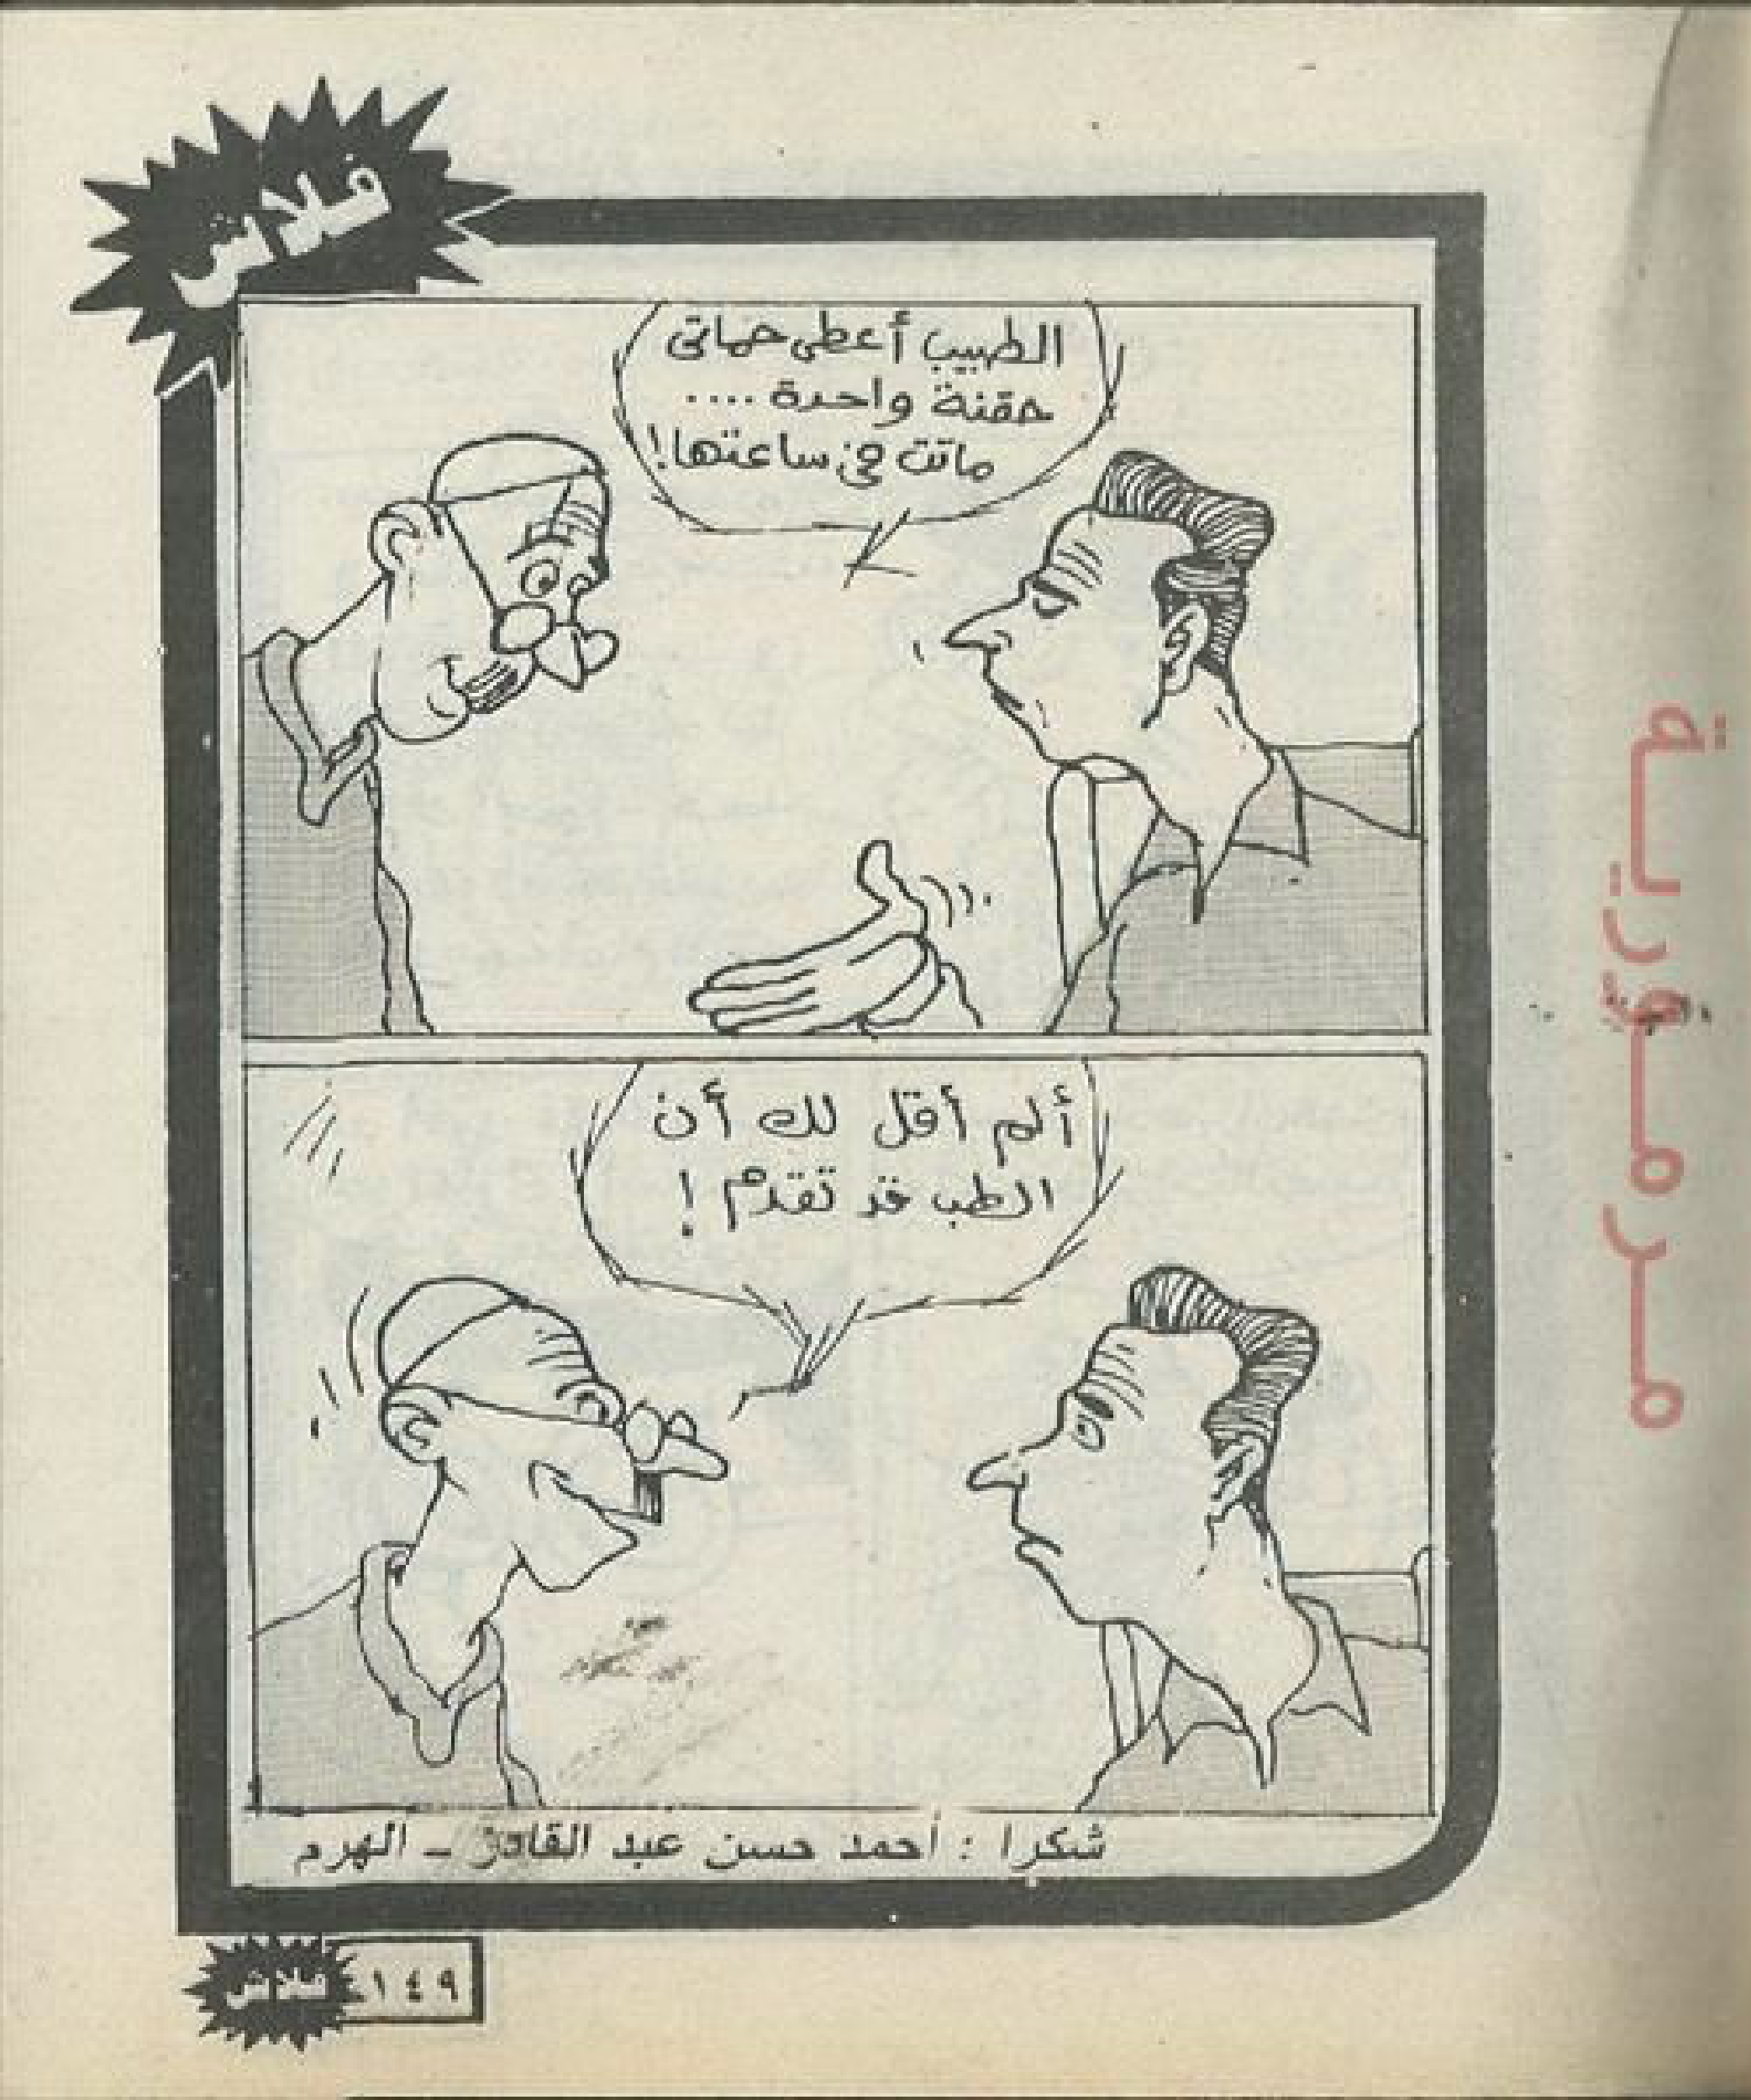 فلاش
الطبيب أعطى حماتى
حقنة واحدة ....
ماتت في ساعتها!
ألم أقل لك أن
الطب قد تقدم !
شكرا : أحمد حسن عبد القادر - الهرم
فلاش ١٤٩
مرمورية